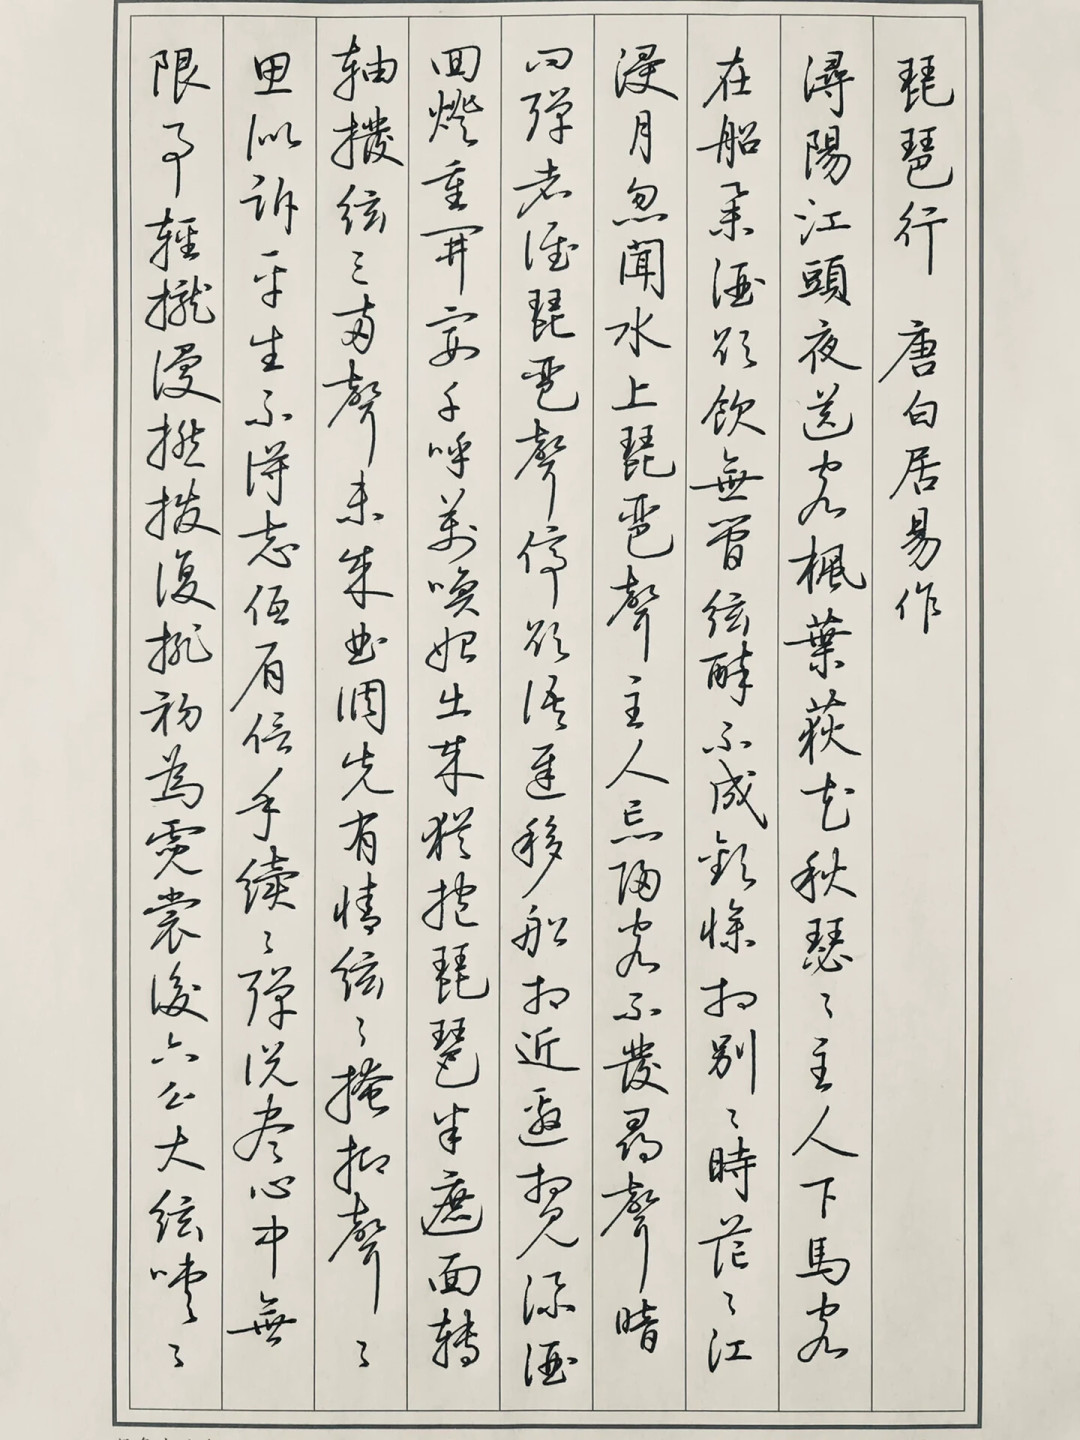 琵琶行 唐白居易作
潯陽江頭夜送客楓葉荻花秋瑟〻主人下馬客
在船舉酒欲飲無管弦醉不成歡慘相別〻時茫〻江
浸月忽聞水上琵琶聲主人忘歸客不發尋聲暗
问彈者誰琵琶聲停欲語遲移船相近邀相見添酒
回燈重開宴千呼萬喚始出來猶抱琵琶半遮面轉
軸撥弦三兩聲未成曲調先有情弦〻掩抑聲〻
思似訴平生不得志低眉信手續〻彈说盡心中無
限事輕攏慢撚撥復挑初為霓裳後六么大弦嘈〻